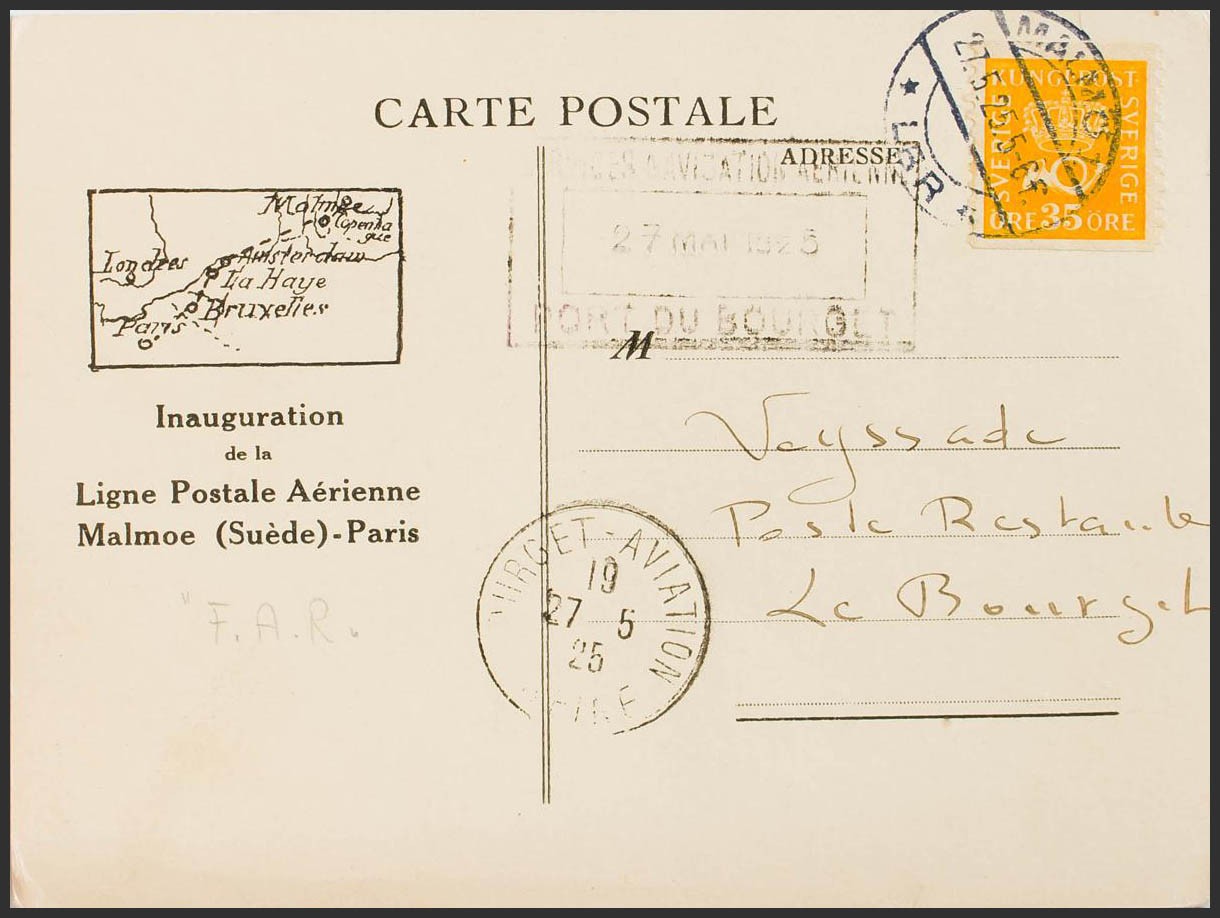 CARTE POSTALE
ADRESSE
NAVIGATION AERIENNE
27 MAI 1925
PORT DU BOURGET
MALMÖ 1
27.5.25.5-6F.
LBR
KUNGL POST
SVERIGE
SVERIGE
ÖRE 35 ÖRE
Malmoe
Copenha
gue
Londres
Amsterdam
La Haye
Bruxelles
Paris
Inauguration
de la
Ligne Postale Aérienne
Malmoe (Suède)-Paris
"F.A.R.
M
Veyssade
Poste Restante
Le Bourget
BOURGET-AVIATION
19
27 5
25
SEINE